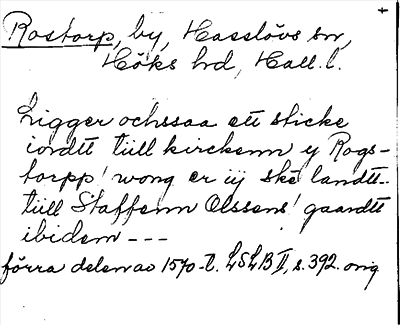 Rostorp, by, Hasslövs sn,
Höks hd, Hall. l.
Ligger ochssaa ett sticke
iordtt tiill kirckenn y Rogs-
torpp! wong er iij ske landtt-
tiill Staffenn Olssens! gaardtt
ibidem ---
förra delen av 1570-t. LSLB II, s. 392. orig